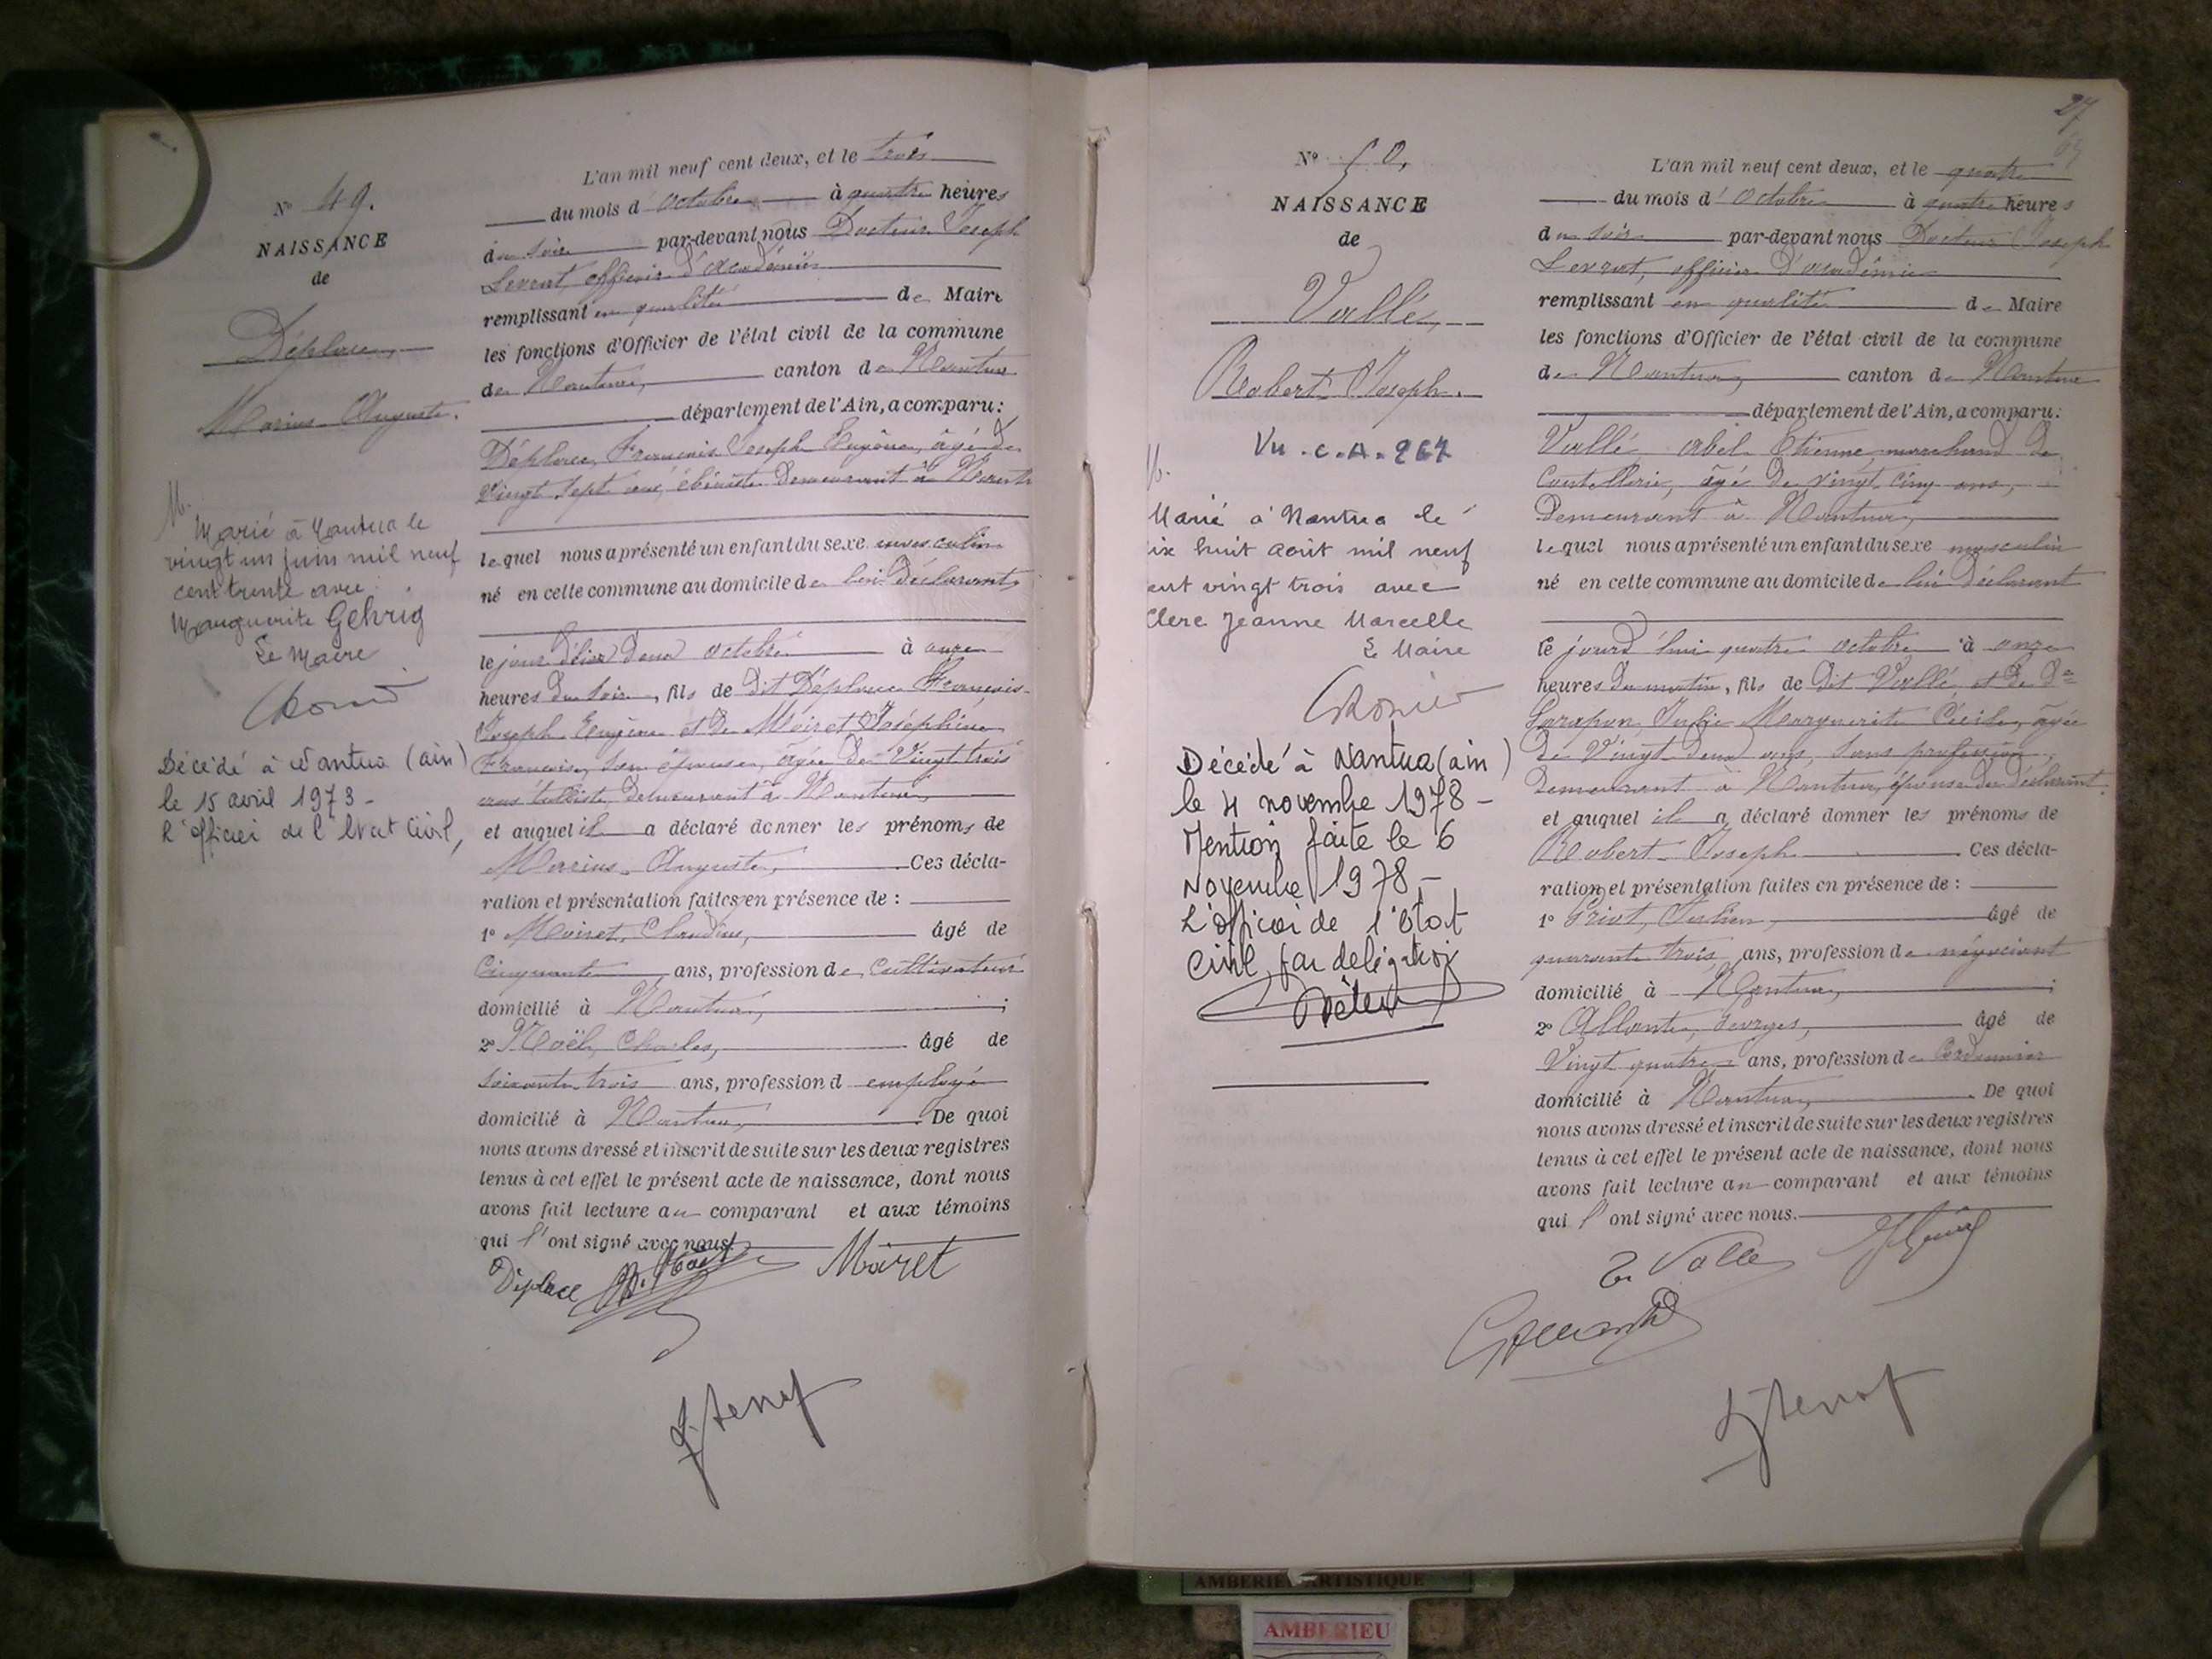 N° 49.
NAISSANCE
de
Déplace,
Marius Auguste.
M.
Marié à Nantua le
vingt un juin mil neuf
cent trente avec
Marguerite Gehrig
Le Maire
Décédé à Nantua (ain)
le 15 avril 1973 -
L'officier de l'Etat Civil,
L'an mil neuf cent deux, et le trois
du mois d'octobre à quatre heures
du soir par-devant nous Docteur Joseph
Levrat, officier d'académie
remplissant en qualité de Maire
les fonctions d'Officier de l'état civil de la commune
de Nantua, canton de Nantua
département de l'Ain, a comparu:
Déplace, François Joseph Eugène, âgé de
vingt sept ans, ébéniste demeurant à Nantua
lequel nous a présenté un enfant du sexe masculin
né en cette commune au domicile de lui déclarant,
le jour d'hier deux octobre à onze
heures du soir, fils de dit Déplace François
Joseph Eugène et de Moiret Joséphine
Françoise, son épouse, âgée de vingt trois
ans tulliste, demeurant à Nantua,
et auquel il a déclaré donner les prénoms de
Marius Auguste, Ces décla-
ration et présentation faites en présence de :
1° Moiret, Claudius, âgé de
cinquante ans, profession de cultivateur
domicilié à Nantua, ;
2° Noël, Charles, âgé de
soixante trois ans, profession d employé
domicilié à Nantua, De quoi
nous avons dressé et inscrit de suite sur les deux registres
tenus à cet effet le présent acte de naissance, dont nous
avons fait lecture au comparant et aux témoins
qui l'ont signé avec nous.
Déplace Moiret
27
N° 50,
NAISSANCE
de
Vallé,
Robert Joseph.
Vu . C. A. 267
Marié à Nantua le
dix huit août mil neuf
cent vingt trois avec
Clerc Jeanne Marcelle
Le Maire
Décédé à Nantua (ain)
le 4 novembre 1978 -
Mention faite le 6
Novembre 1978 -
L'officier de l'état
civil, par délégation
L'an mil neuf cent deux, et le quatre
du mois d'Octobre à quatre heures
du soir par-devant nous Docteur Joseph
Levrat, officier d'académie
remplissant en qualité de Maire
les fonctions d'Officier de l'état civil de la commune
de Nantua, canton de Nantua
département de l'Ain, a comparu:
Vallé abel Etienne, marchand de
Coutellerie, âgé de vingt cinq ans,
demeurant à Nantua,
lequel nous a présenté un enfant du sexe masculin
né en cette commune au domicile de lui déclarant
le jourd'hui quatre octobre à onze
heures du matin, fils de dit Vallé et de De
Julie Marguerite Cécile, âgée
de vingt deux ans, sans profession,
demeurant à Nantua, épouse du déclarant.
et auquel il a déclaré donner les prénoms de
Robert Joseph Ces décla-
ration et présentation faites en présence de :
1° Julien, âgé de
quarante trois ans, profession de négociant
domicilié à Nantua, ;
2° Allante, Georges, âgé de
vingt quatre ans, profession de Cordonnier
domicilié à Nantua, De quoi
nous avons dressé et inscrit de suite sur les deux registres
tenus à cet effet le présent acte de naissance, dont nous
avons fait lecture au comparant et aux témoins
qui l'ont signé avec nous.
Vallé
AMBERIEU ARTISTIQUE
AMBERIEU